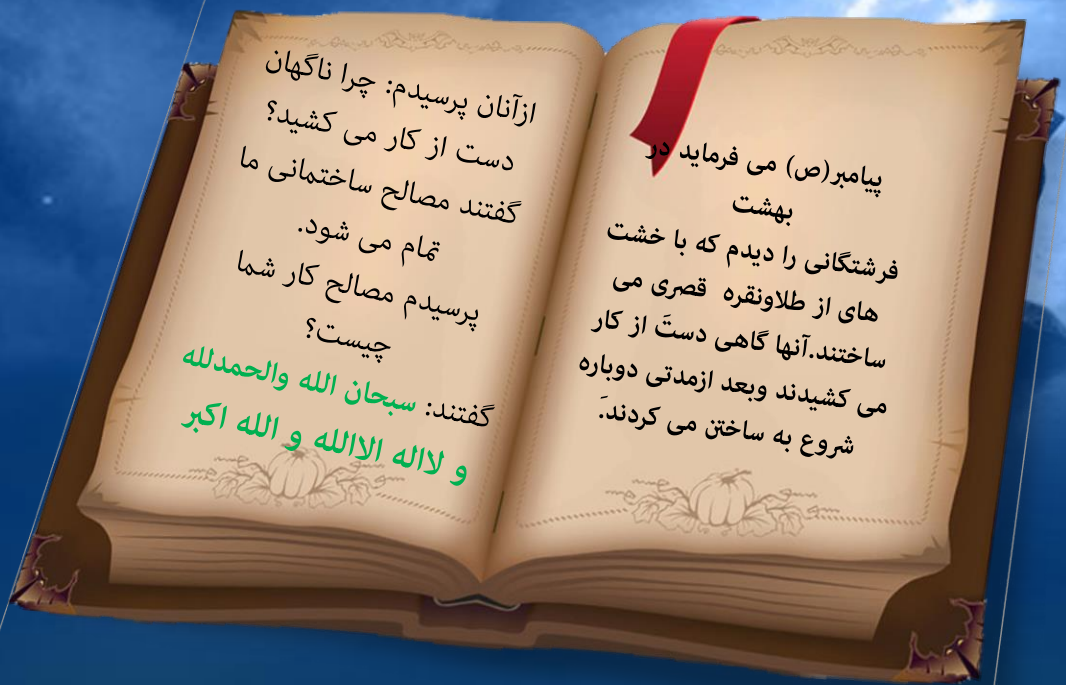 پیامبر(ص) می فرماید در
بهشت
فرشتگانی را دیدم که با خشت
های از طلاونقره قصری می
ساختند.آنها گاهی دستَ از کار
می کشیدند وبعد ازمدتی دوباره
شروع به ساختن می کردند.َ
ازآنان پرسیدم: چرا ناگهان
دست از کار می کشید؟
گفتند مصالح ساختمانی ما
تمام می شود.
پرسیدم مصالح کار شما
چیست؟
گفتند: سبحان الله والحمدلله
و لااله الاالله و الله اکبر